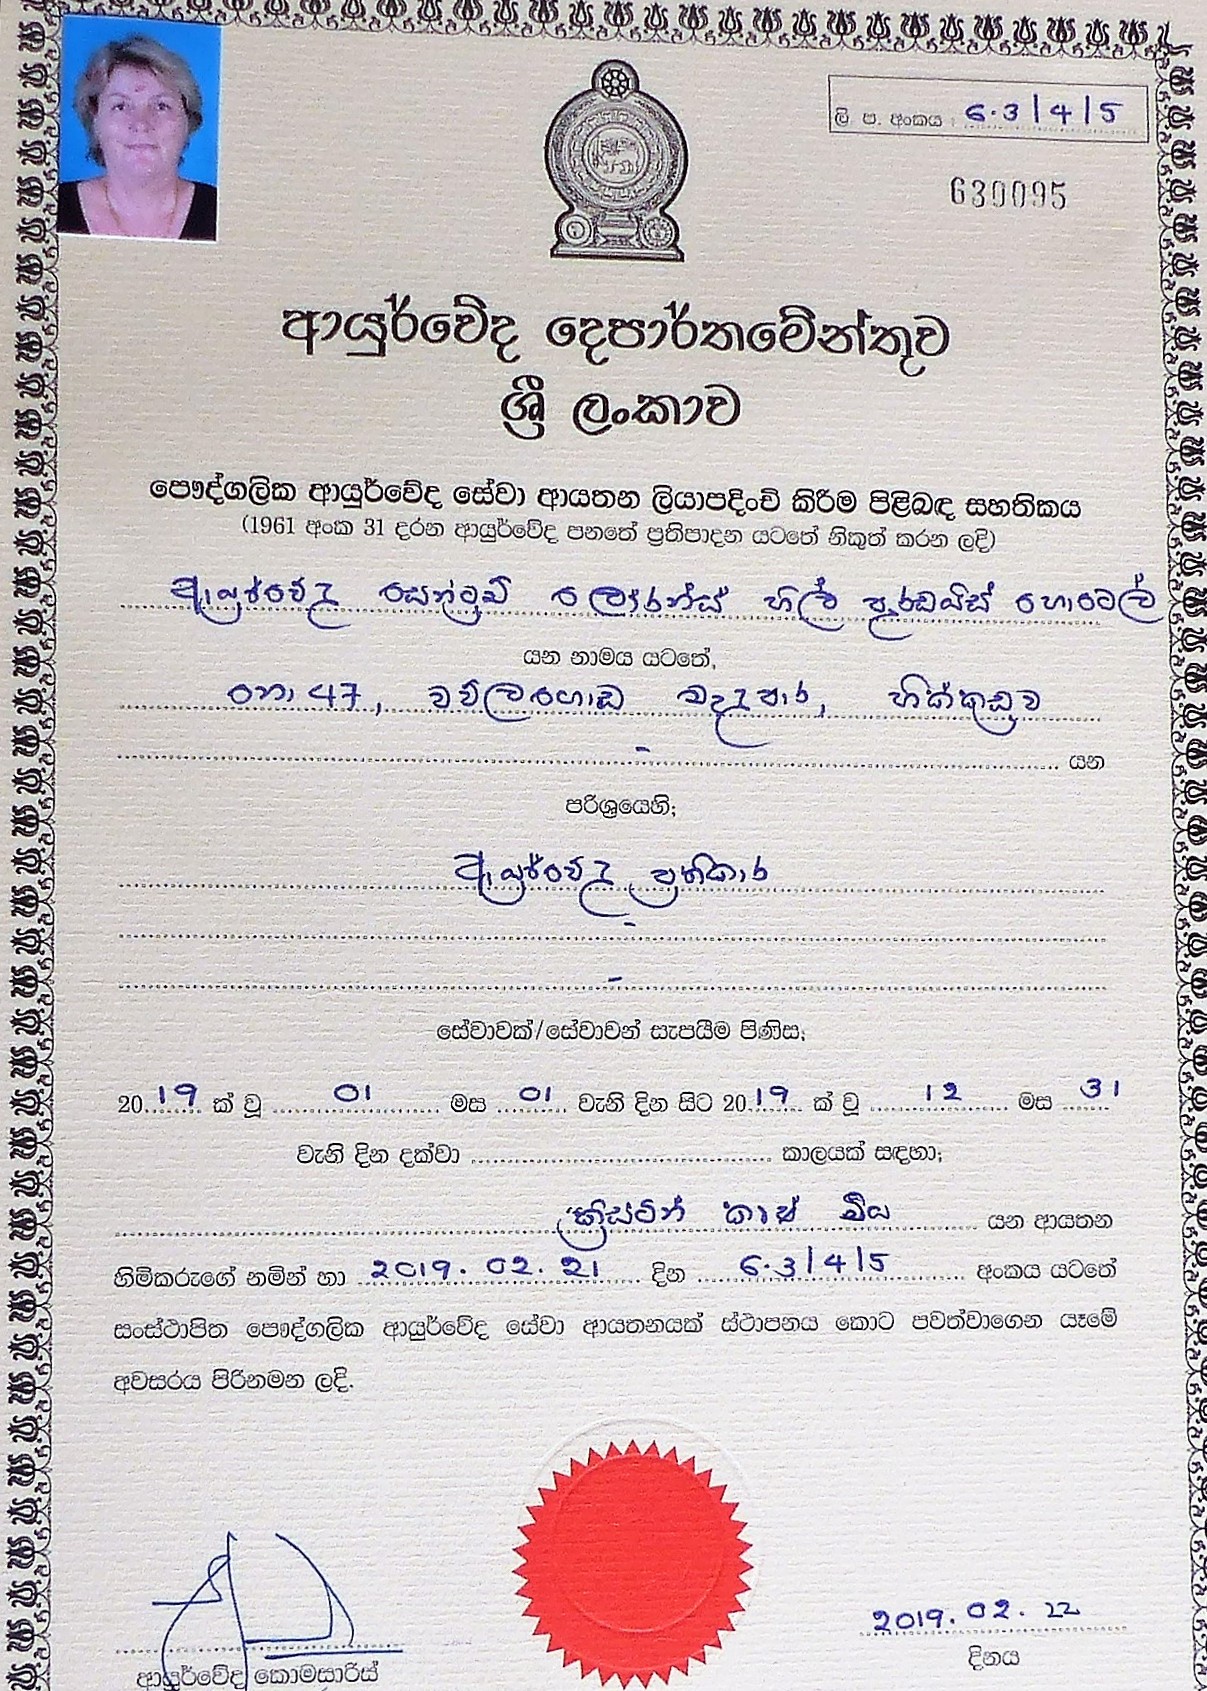 ලි. ප. අංකය : 6.3/4/5
630095
ආයුර්වේද දෙපාර්තමේන්තුව
ශ්‍රී ලංකාව
පෞද්ගලික ආයුර්වේද සේවා ආයතන ලියාපදිංචි කිරීම පිළිබඳ සහතිකය
(1961 අංක 31 දරන ආයුර්වේද පනතේ ප්‍රතිපාදන යටතේ නිකුත් කරන ලදි)
ආයුර්වේද සෙන්ටුව් ලෝරන්ස් හිල් පැරඩයිස් හොටෙල්
යන නාමය යටතේ,
නො 47, වව්ලගොඩ මැදපාර, හික්කඩුව
- යන
පරිශ්‍රයෙහි;
ආයුර්වේද ප්‍රතිකාර
-
-
සේවාවක්/සේවාවන් සැපයීම පිණිස;
2019 ක් වූ 01 මස 01 වැනි දින සිට 2019 ක් වූ 12 මස 31
වැනි දින දක්වා කාලයක් සඳහා;
ක්‍රිස්ටීන් යන ආයතන
හිමිකරුගේ නමින් හා 2019.02.21 දින 6.3/4/5 අංකය යටතේ
සංස්ථාපිත පෞද්ගලික ආයුර්වේද සේවා ආයතනයක් ස්ථාපනය කොට පවත්වාගෙන යෑමේ
අවසරය පිරිනමන ලදි.
2019.02.22
ආයුර්වේද කොමසාරිස් දිනය